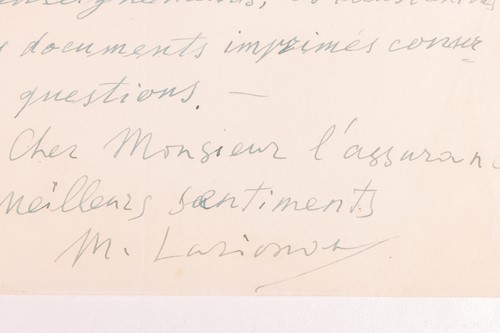 documents imprimés conser-
questions. —
Cher Monsieur l'assuranc
meilleurs sentiments
M. Larionov